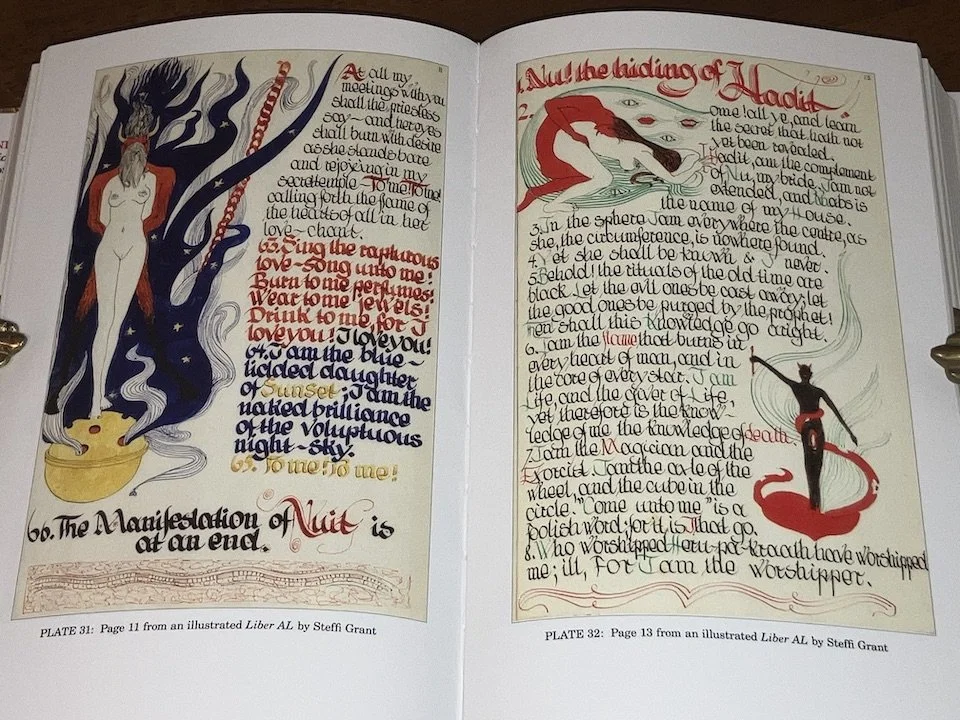 11
At all my
meetings with you
shall the priestess
say ~ and her eyes
shall burn with desire
as she stands bare
and rejoicing in my
secret temple ~ To me! To me!
calling forth the flame of
the hearts of all in her
love ~ chant.
63. Sing the rapturous
love ~ song unto me!
Burn to me perfumes!
Wear to me jewels!
Drink to me, for I
love you! I love you!
64. I am the blue ~
lidded daughter
of Sunset; I am the
naked brilliance
of the voluptuous
night ~ sky.
65. To me! To me!
66. The Manifestation of Nuit is
at an end.
PLATE 31: Page 11 from an illustrated Liber AL by Steffi Grant
13
1. Nu! the hiding of Hadit
2. Come! all ye, and learn
the secret that hath not
yet been revealed.
I Hadit, am the complement
of Nu, my bride. I am not
extended, and Khabs is
the name of my House.
3. In the sphere I am everywhere the centre, as
she, the circumference, is nowhere found.
4. Yet she shall be known & I never.
5. Behold! the rituals of the old time are
black. Let the evil ones be cast away; let
the good ones be purged by the prophet!
Then shall this Knowledge go aright.
6. I am the flame that burns in
every heart of man, and in
the core of every star. I am
Life, and the giver of Life,
yet therefore is the know ~
ledge of me the knowledge of death.
7. I am the Magician and the
Exorcist. I am the axle of the
wheel, and the cube in the
circle. "Come unto me" is a
foolish word; for it is I that go.
8. Who worshipped Heru-pa-kraath have worshipped
me; ill, For I am the worshipper.
PLATE 32: Page 13 from an illustrated Liber AL by Steffi Grant